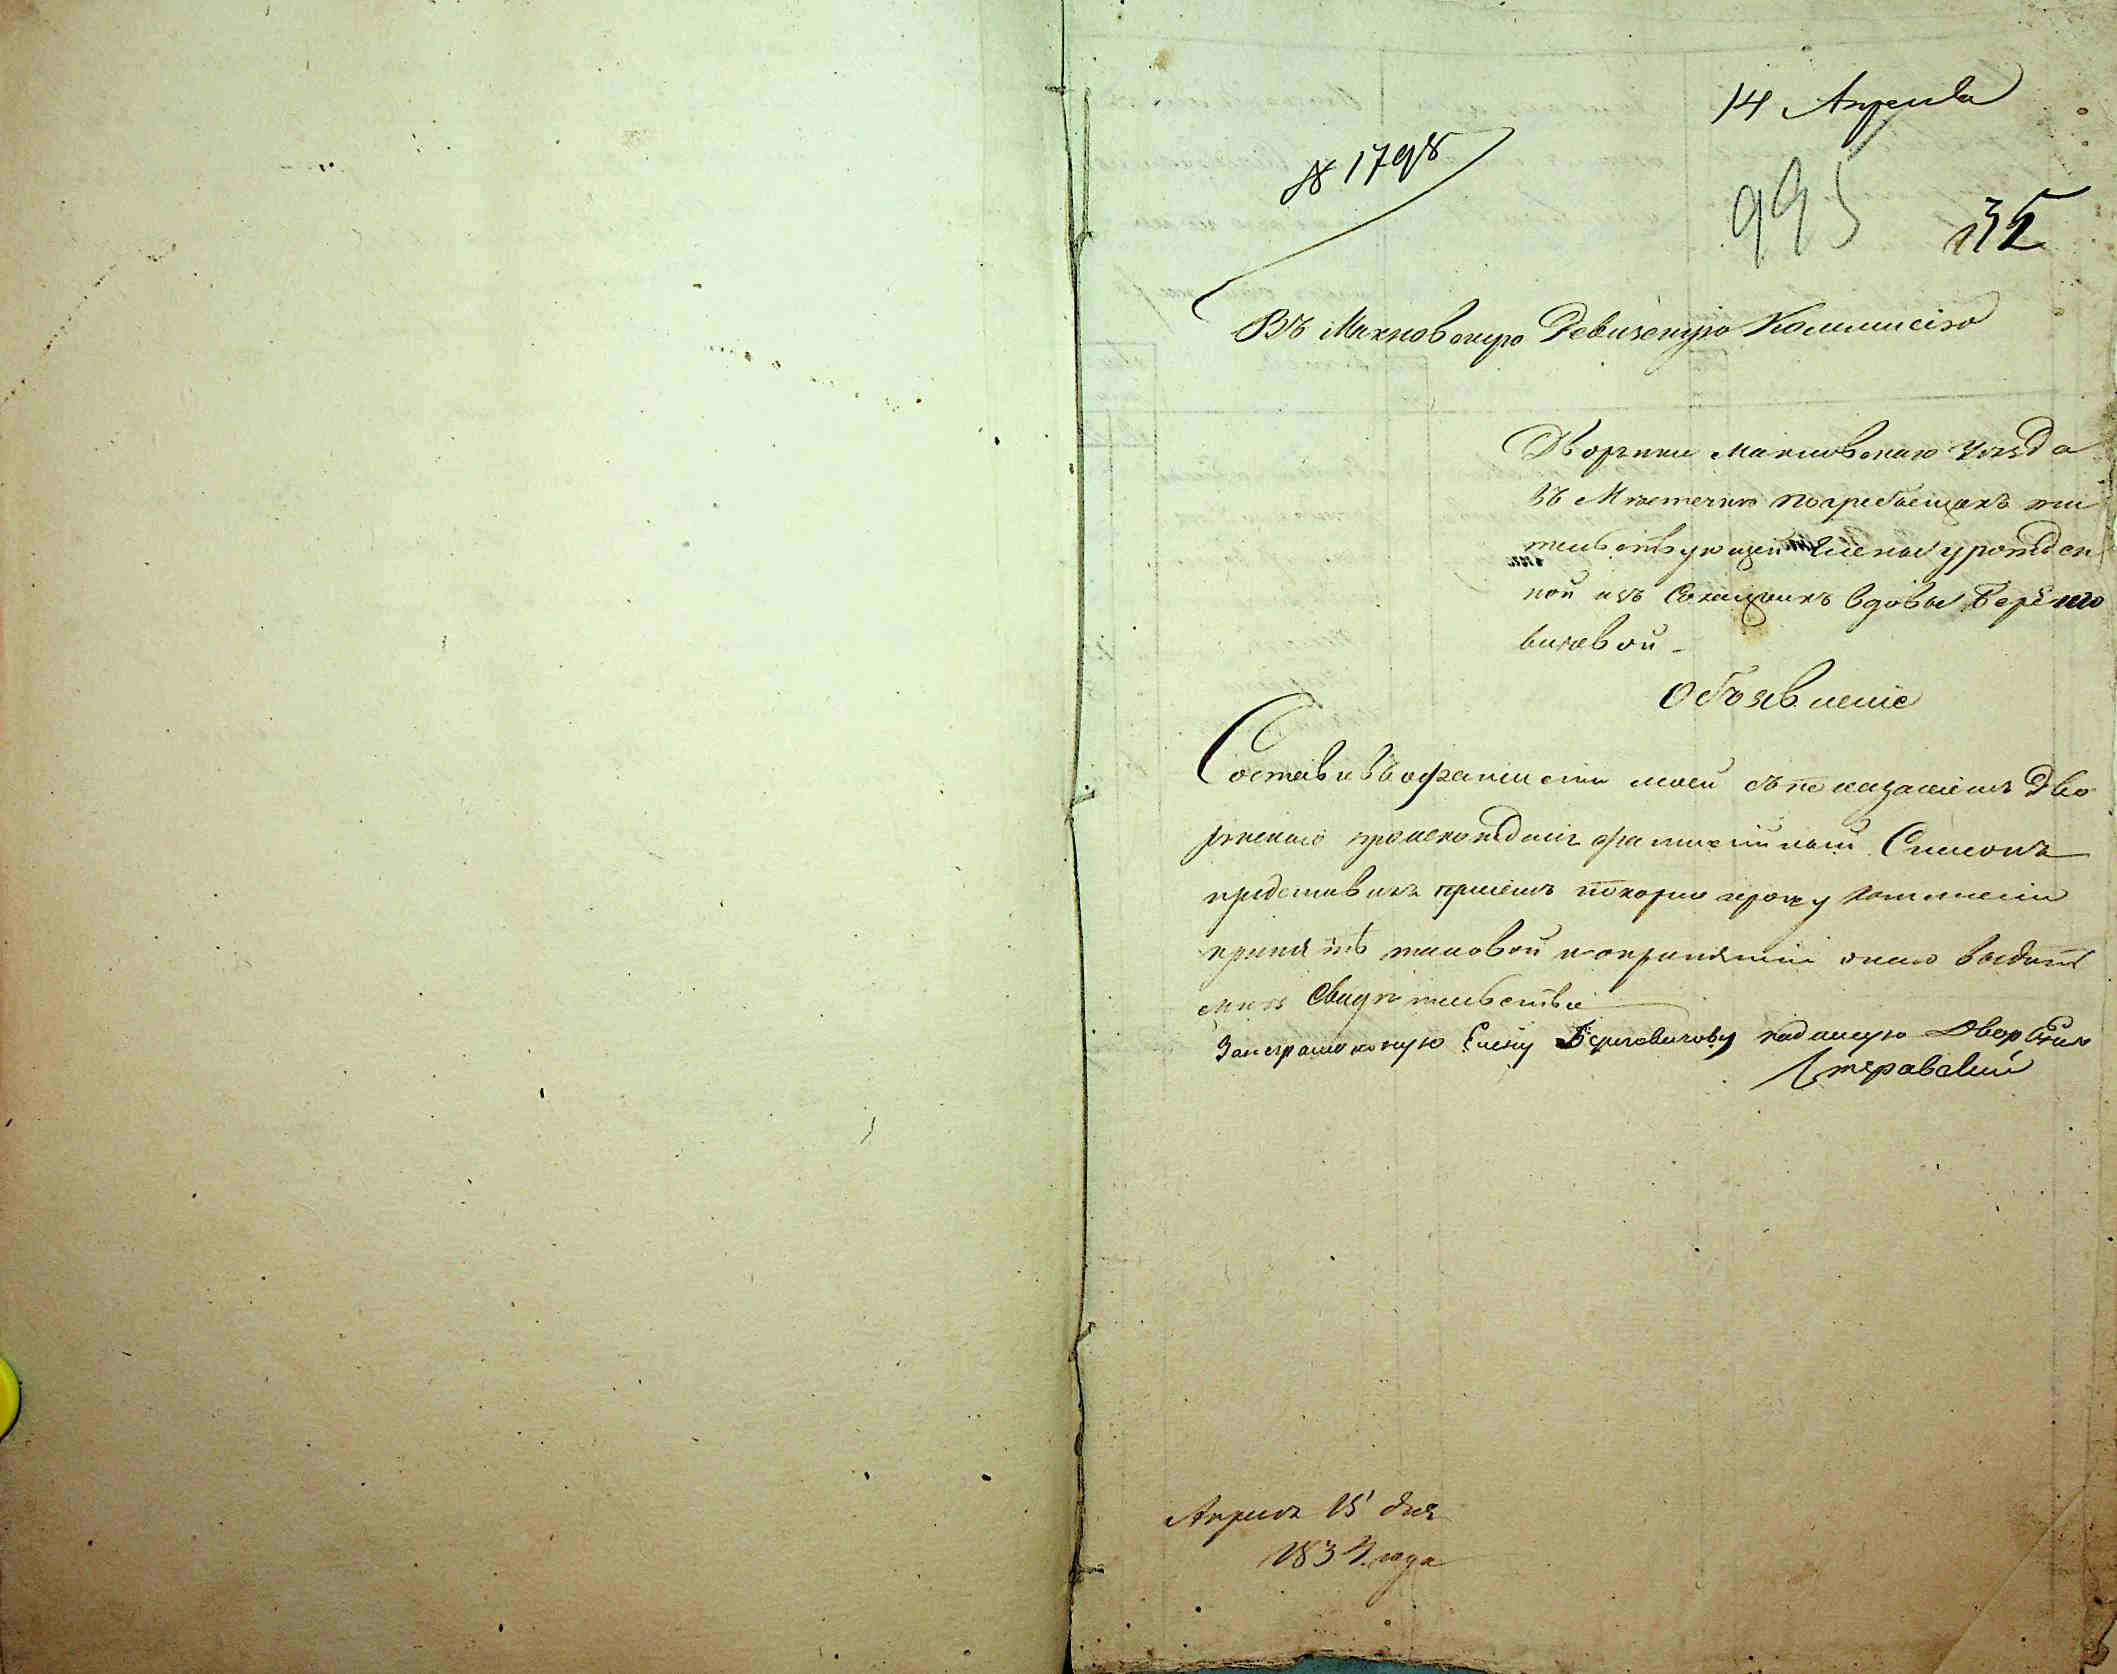 14 Апреля
№ 1798
995
35
Въ Махновскую Ревизскую Коммисію
Дворянки Махновскаго Уезда
въ Местечке Погребыщахъ жи
тельствующей Елены урожден
ной изъ вдовы
вичевой
Объявленіе
Составивъ о фамиліи моей съ показаніемъ Дво
рянскаго происхожденія фамилійный Списокъ
представляя присемъ покорно прошу Коммисію
принять таковой и о принятіи онаго выдать
мне Свидетельствіе
Занеграмотную Елену Берловичову Двор
Апреля 15 дня
1834 года